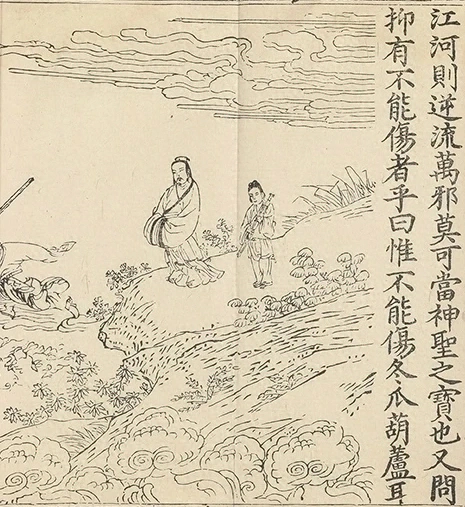 江河則逆流萬邪莫可當神聖之寶也又問
抑有不能傷者乎曰惟不能傷冬瓜葫蘆耳